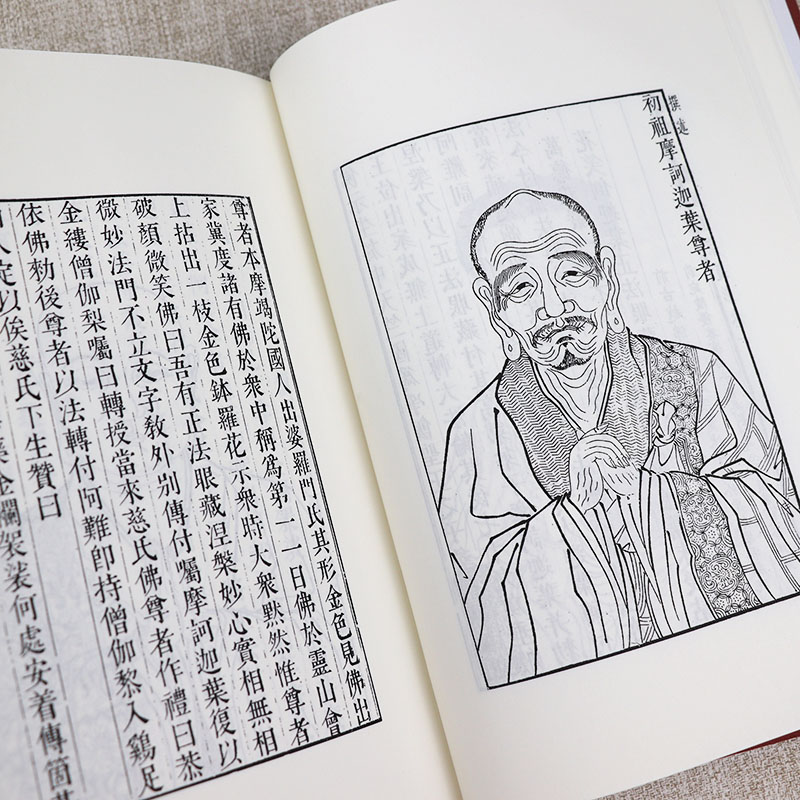 撰述
初祖摩訶迦葉尊者
尊者本摩竭陀國人出婆羅門氏其形金色見佛出
家冀度諸有佛於衆中稱爲第一一日佛於靈山會
上拈出一枝金色鉢羅花示衆時大衆默然惟尊者
破顏微笑佛曰吾有正法眼藏涅槃妙心實相無相
微妙法門不立文字教外別傳付囑摩訶迦葉復以
金縷僧伽梨囑曰轉授當來慈氏佛尊者作禮曰恭
依佛勅後尊者以法轉付阿難即持僧伽黎入鷄足
入定以俟慈氏下生贊曰
金襴袈裟何處安着傳箇